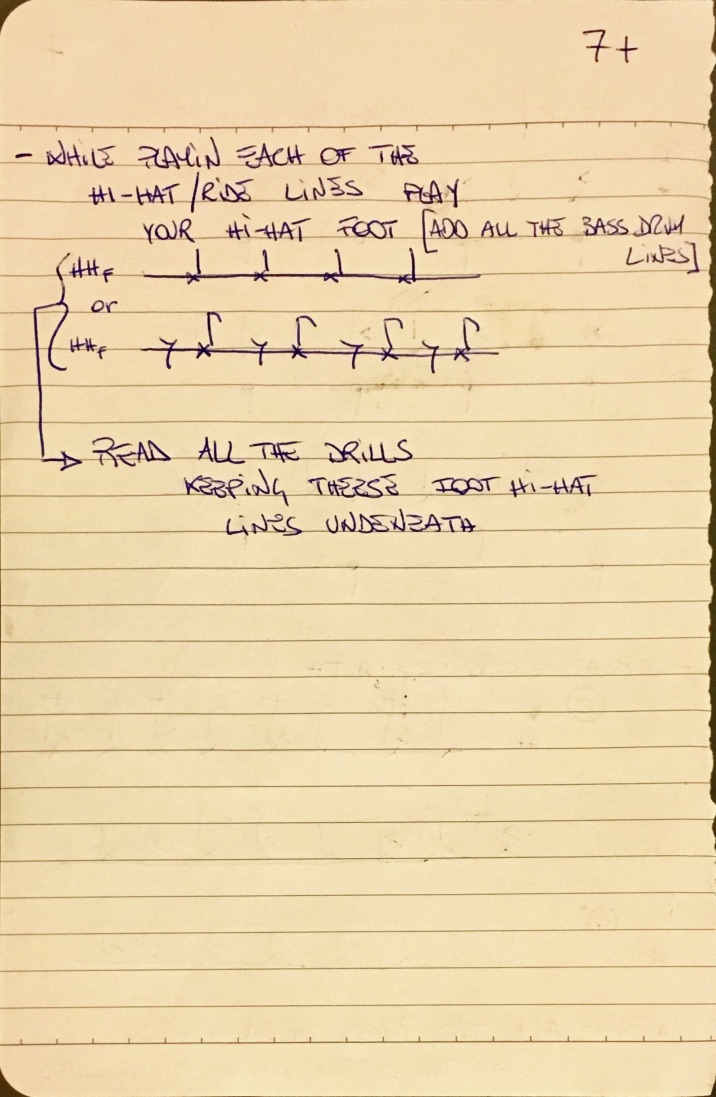 7+
- WHILE PLAYIN EACH OF THE
HI-HAT/RIDE LINES PLAY
YOUR HI-HAT FOOT [ADD ALL THE BASS DRUM
LINES]
HHF
or
HHF
READ ALL THE DRILLS
KEEPING THEESE FOOT HI-HAT
LINES UNDERNEATH